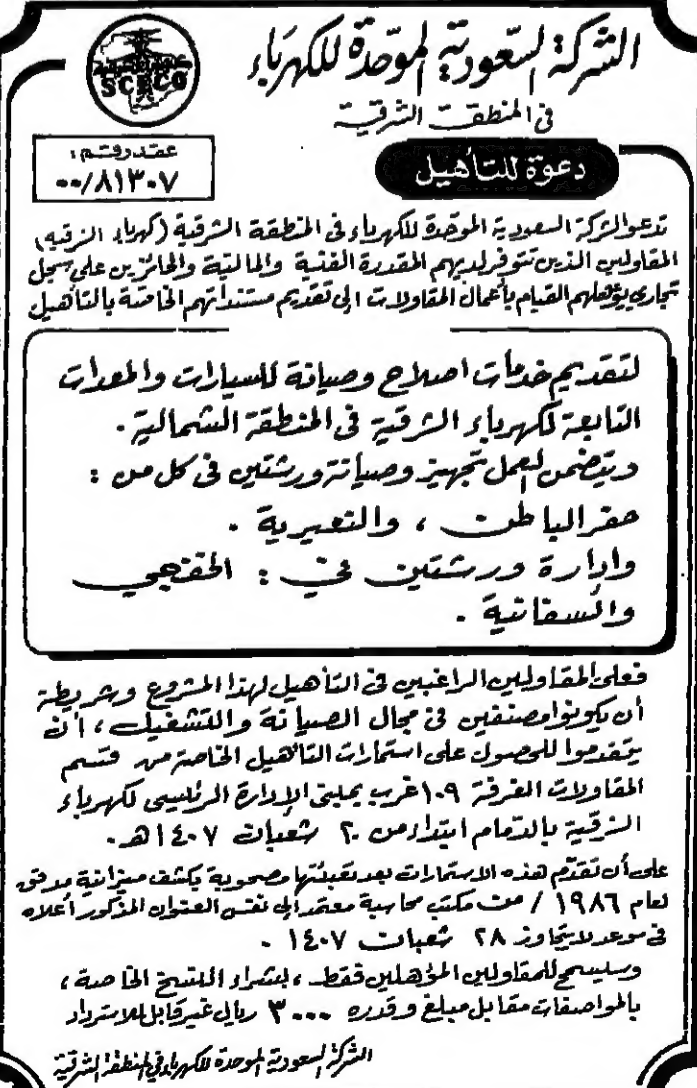 الشركة السعودية الموحدة للكهرباء
في المنطقة الشرقية
SCECO
عقد رقم:
٠٠/٨١٣٠٧
دعوة للتأهيل
تدعو الشركة السعودية الموحدة للكهرباء في المنطقة الشرقية (كهرباء الشرقية)
المقاولين الذين تتوفر لديهم المقدرة الفنية والمالية والحائزين على سجل
تجاري يؤهلهم القيام بأعمال المقاولات الى تقديم مستنداتهم الخاصة بالتأهيل
لتقديم خدمات اصلاح وصيانة للسيارات والمعدات
التابعة لكهرباء الشرقية في المنطقة الشمالية.
ويتضمن العمل تجهيز وصيانة ورشتين في كل من :
حفر الباطن ، والنعيرية .
وإدارة ورشتين في : الخفجي
والسفانية .
فعلى المقاولين الراغبين في التأهيل لهذا المشروع وشريطة
أن يكونوا مصنفين في مجال الصيانة والتشغيل ، أن
يتقدموا للحصول على استمارات التأهيل الخاصة من قسم
المقاولات الغرفة ١٠٩ غرب بمبنى الإدارة الرئيسي لكهرباء
الشرقية بالدمام ابتداء من ٢٠ شعبان ١٤٠٧هـ.
على أن تقدم هذه الاستمارات بعد تعبئتها مصحوبة بكشف ميزانية مدقق
لعام ١٩٨٦ / من مكتب محاسبة معتمد الى نفس العنوان المذكور أعلاه
في موعد لا يتجاوز ٢٨ شعبان ١٤٠٧ .
وسيسمح للمقاولين المؤهلين فقط ، بشراء النسخ الخاصة ،
بالمواصفات مقابل مبلغ وقدره ٣٠٠٠ ريال غير قابل للاسترداد
الشركة السعودية الموحدة للكهرباء في المنطقة الشرقية